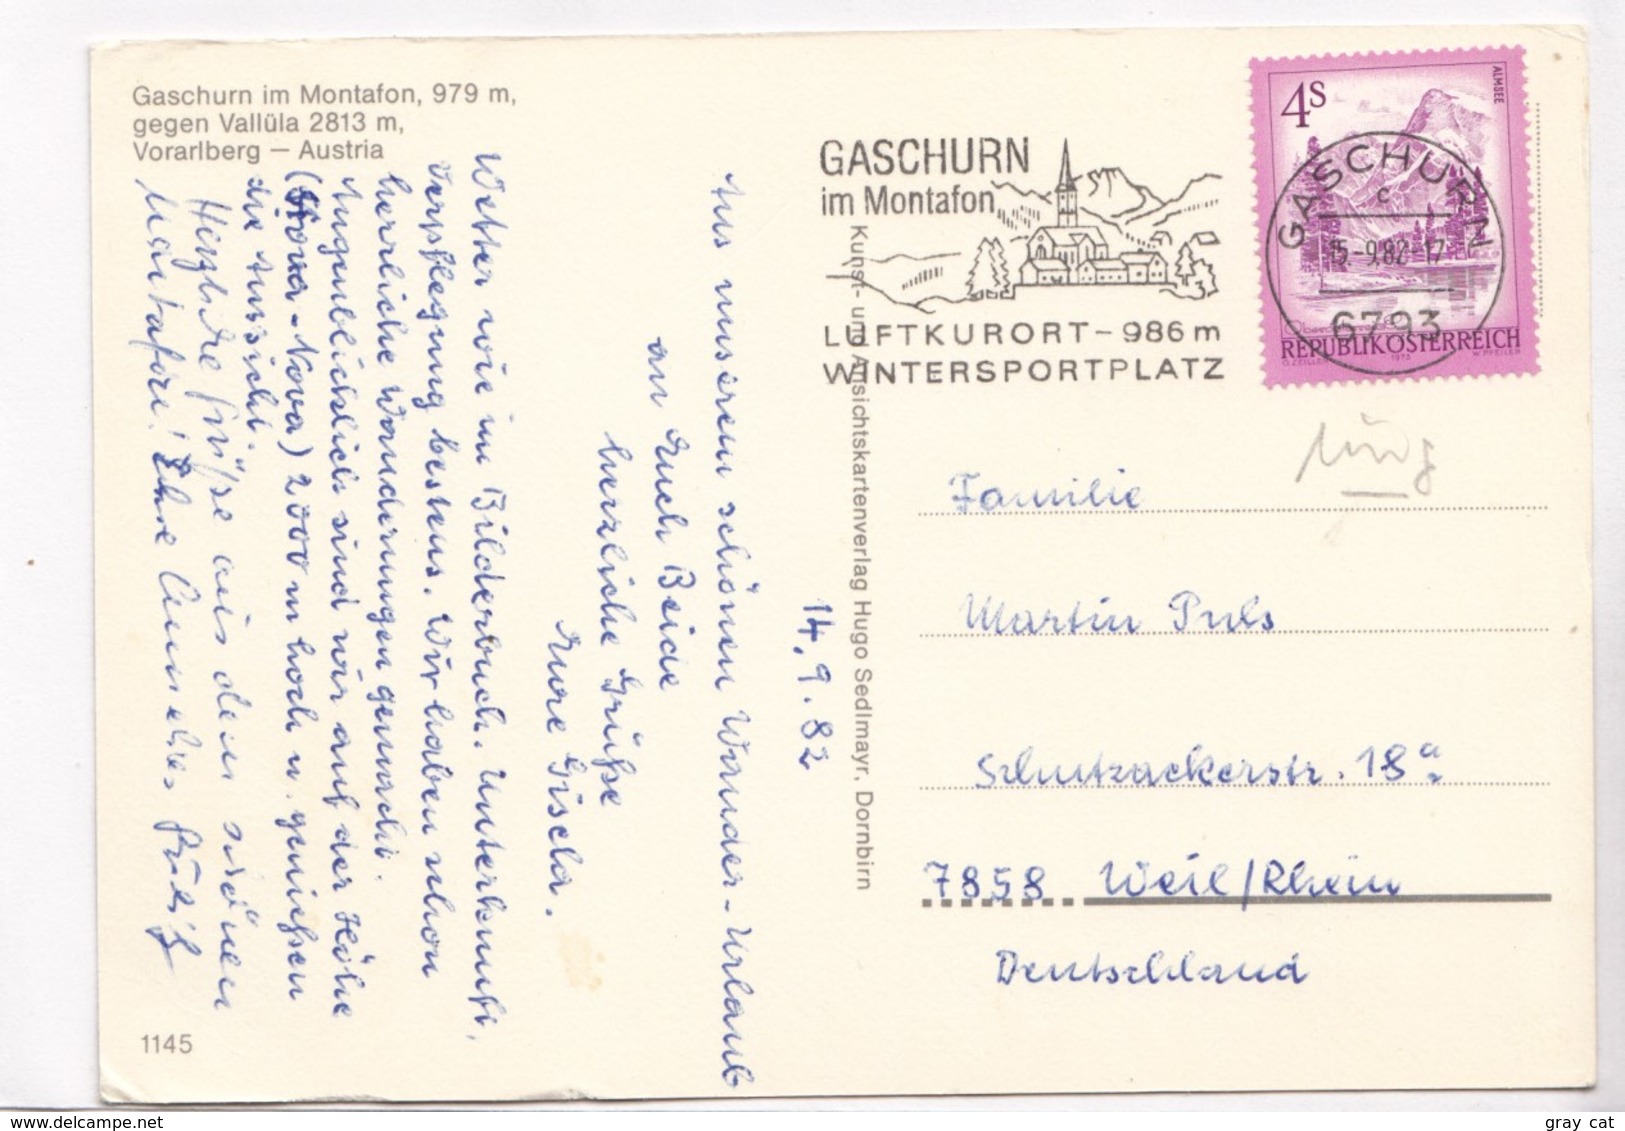 Gaschurn im Montafon, 979 m,
gegen Vallüla 2813 m,
Vorarlberg – Austria
14.9.82
Aus unserem schönen Wander-Urlaub
an Euch Beide
herzliche Grüße
Eure Gisela.
Wetter wie im Bilderbuch. Unterkunft,
Verpflegung bestens. Wir haben schon
herrliche Wanderungen gemacht.
Augenblicklich sind wir auf der Höhe
(Nova-Nova) 2000 m hoch u. genießen
die Aussicht.
Herzliche Grüße aus dem schönen
Montafon! Ihre
1145
Kunst- und Ansichtskartenverlag Hugo Sedlmayr, Dornbirn
GASCHURN
im Montafon
LUFTKURORT – 986 m
WINTERSPORTPLATZ
4S
ALMSEE
REPUBLIK ÖSTERREICH
O. ZEILLER 1973 W. PFEILER
GASCHURN
c
15.-9.82-17
6793
Familie
Martin Puls
Schutzackerstr. 18a
7858 Weil/Rhein
Deutschland
gray cat